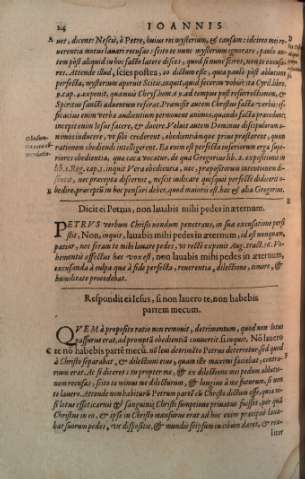 214 IOANNIS
uet, diceret Nescis, ô Petre, huius rei mysterium, & causam: idcirco mei re-
uerentia motus lauari recusas: sisto te nunc mysterium ignorare, paulo au-
tem post aliquid in hoc facto lauero disces, quod si nunc scires, non te recusa-
res. Attende illud, scies postea, eo dictum esse, quia paulo pòst ablutione
perfecta, mysterium aperuit
cap. 4. exponit, quamuis Chrysost. ad tempus post resurrectionem, &
Spiritus sancti aduentum referat. Præmissit autem Christus facta verbis: ef-
ficaciùs enim verba audientium permouent animos, quando facta præcedunt:
incepit enim Iesus facere, & docere. Voluit autem Dominus discipulorum a-
nimos inducere, vt sibi crederent, obedientiámque prius præstarent, quàm
rationem obediendi intelligerent. Ea enim est perfecta inferiorum erga supe-
riores obedientia, quæ cæca vocatur, de qua Gregorius lib. 2. expositionum in
lib. 1. Reg. cap. 4. inquit Vera obedientia, nec præpositorum intentionem di-
scutit, nec præcepta discernit, nescit iudicare quisquis perfectè didicerit o-
bedire, præcepti in hoc pensari debet, quod maiores est, hæc & alia Gregorius.
Dicit ei Petrus, non lauabis mihi pedes in æternum.
PETRVS verbum Christi nondum penetrans, in sua excusatione persi-
stit, Non, inquit, lauabis mihi pedes in æternum, id est nunquam,
patiar, nec sinam te mihi lauare pedes, vt rectè exponit Aug. tract. 56. Ve-
hementis affectus hæc vox est, non lauabis mihi pedes in æternum,
excusanda à culpa quia à fide perfecta, reuerentia, dilectione, amore, &
humilitate procedebat.
Respondit ei Iesus, si non lauero te, non habebis
partem mecum.
QVEM à proposito ratio non remouit, detrimentum, quod non lotus
passurus erat, ad promptā obedientiā conuertit: si, inquit, Nō laue-
te nō habebis partē mecū. nō leue detrimētū Petrus deterretur, sed quod
à Christo separabat, & dilectione eius, quam ille maximi faciebat, contra-
rium erat. Ac si diceret: si propter me, & ex dilectione mei pedum ablutio-
nem recusas; scito te minus me dilecturum, & longius à me futurum, si non
te lauero. Attende non habiturū Petrum partē cū Christo dictum esse, quia
si lotus esset, carnis & sanguinis Christi sumptione priuatus fuisset, per quā
Christus in eo, & ipse in Christo mansurus erat: ad hoc enim præcipuè laua-
bat suorum pedes, vt dispositos, & mundos seipsum in cibum daret, & rea-
liter